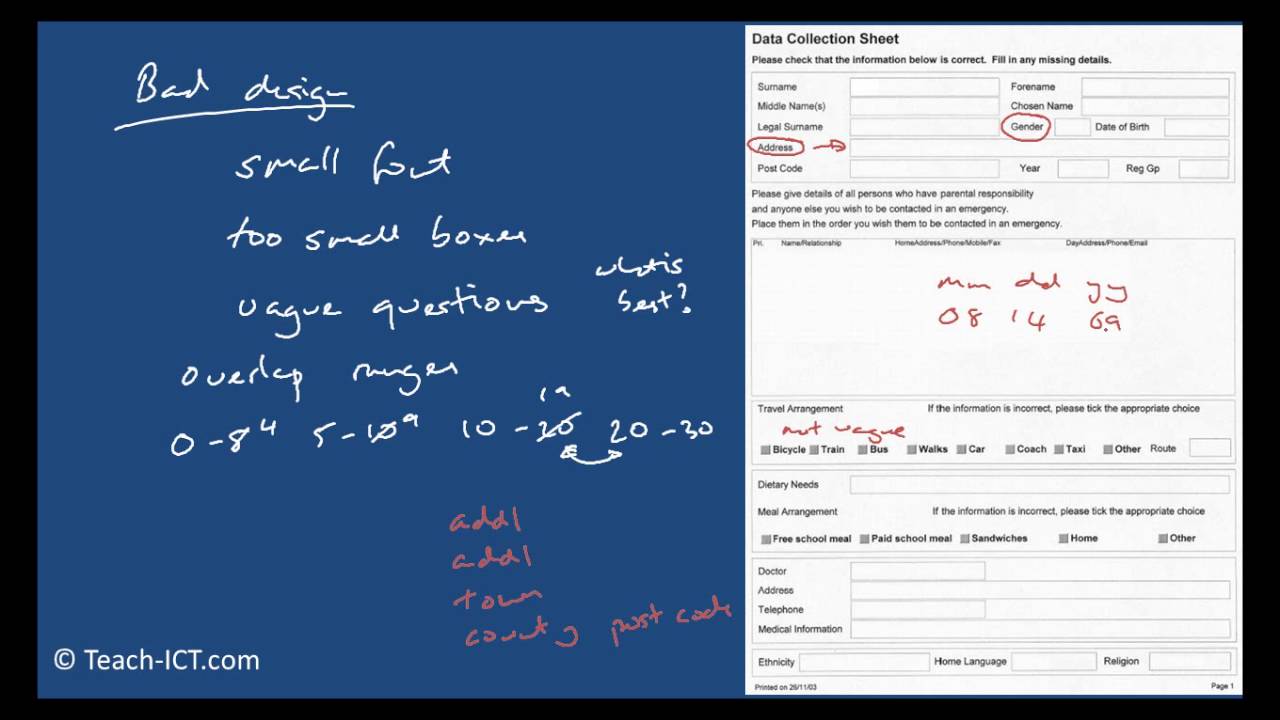 Bad design
small font
too small boxes
vague questions what is best?
overlap ranges
0-8 4 5-10 9 10-20 19 20-30
add1
add1
town
county post code
© Teach-ICT.com
Data Collection Sheet
Please check that the information below is correct. Fill in any missing details.
Surname Forename
Middle Name(s) Chosen Name
Legal Surname Gender Date of Birth
Address
Post Code Year Reg Gp
Please give details of all persons who have parental responsibility
and anyone else you wish to be contacted in an emergency.
Place them in the order you wish them to be contacted in an emergency.
Pri. Name/Relationship HomeAddress/Phone/Mobile/Fax DayAddress/Phone/Email
mm dd yy
08 14 69
Travel Arrangement If the information is incorrect, please tick the appropriate choice
not vague
Bicycle Train Bus Walks Car Coach Taxi Other Route
Dietary Needs
Meal Arrangement If the information is incorrect, please tick the appropriate choice
Free school meal Paid school meal Sandwiches Home Other
Doctor
Address
Telephone
Medical Information
Ethnicity Home Language Religion
Printed on 26/11/03 Page 1